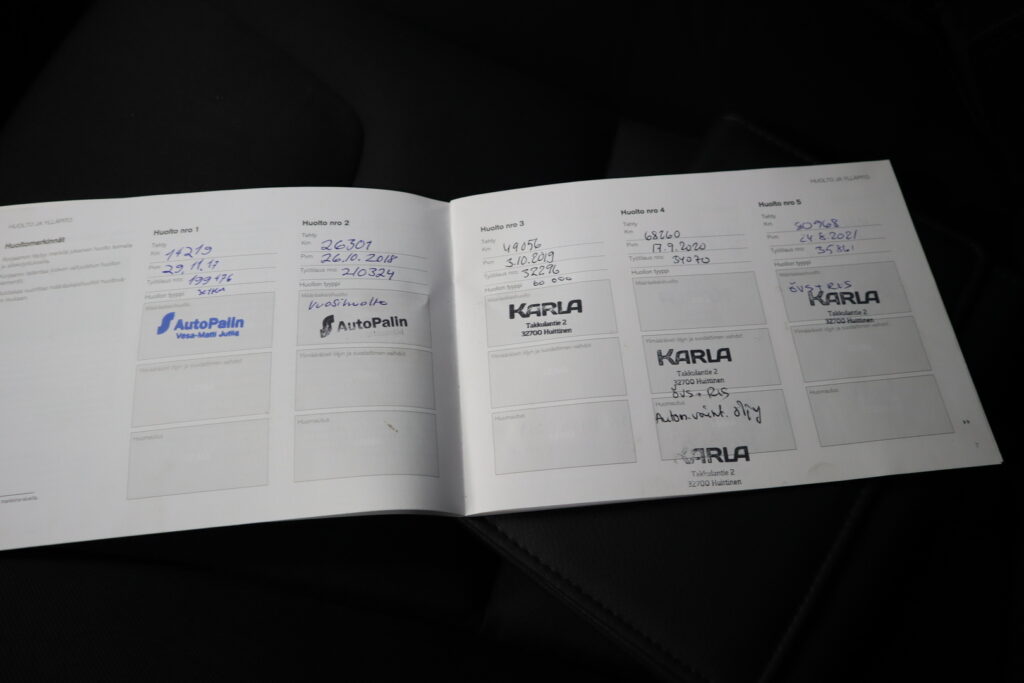 HUOLTO JA YLLÄPITO
Huoltomerkinnät
Huolto nro 1
Tehty
Km 14219
Pvm 29.11.17
Työtilaus nro 199476
Huollon tyyppi
AutoPalin
Vesa-Matti Jutila
Ylimääräiset öljyn ja suodattimen vaihdot
Huomautus
Huolto nro 2
Tehty
Km 26301
Pvm 26.10.2018
Työtilaus nro 210324
Huollon tyyppi
Vuosihuolto
AutoPalin
Ylimääräiset öljyn ja suodattimen vaihdot
Huomautus
Huolto nro 3
Tehty
Km 49056
Pvm 3.10.2019
Työtilaus nro 32296
Huollon tyyppi 60 000
KARLA
Takkulantie 2
32700 Huittinen
Ylimääräiset öljyn ja suodattimen vaihdot
Huomautus
Huolto nro 4
Tehty
Km 68260
Pvm 17.9.2020
Työtilaus nro 34070
Huollon tyyppi
Määräaikaishuolto
Ylimääräiset öljyn ja suodattimen vaihdot
KARLA
Takkulantie 2
32700 Huittinen
ÖVS + RIS
Huomautus
Autom.vaiht. öljy
KARLA
Takkulantie 2
32700 Huittinen
HUOLTO JA YLLÄPITO
Huolto nro 5
Tehty
Km 90968
Pvm 24.8.2021
Työtilaus nro 35861
Huollon tyyppi
ÖVS + RIS
KARLA
Takkulantie 2
32700 Huittinen
Ylimääräiset öljyn ja suodattimen vaihdot
Huomautus
»
7